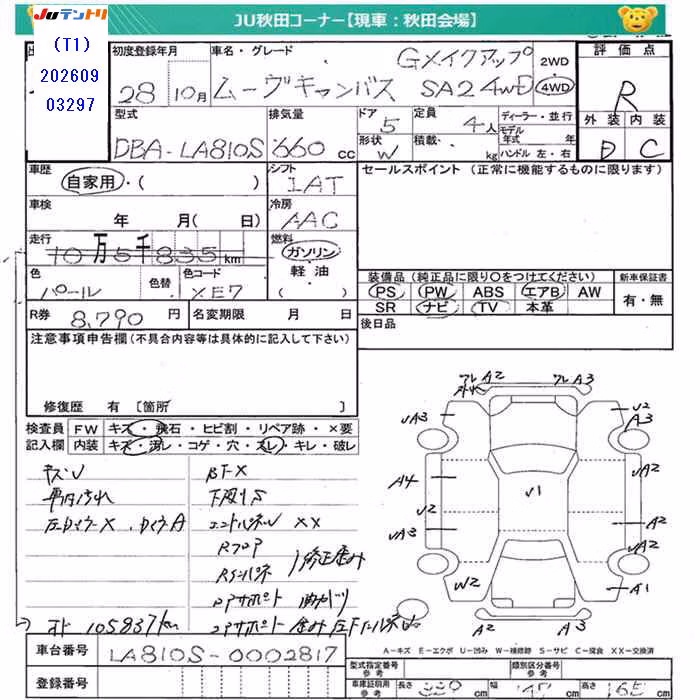 JUテントリ
JU秋田コーナー【現車：秋田会場】
(T1)
202609
03297
初度登録年月
28 10月
車名・グレード
Gメイクアップ
ムーヴキャンバス SA2 4WD
2WD
4WD
評価点
R
外装 内装
D C
型式
DBA-LA810S
排気量
660 cc
ドア
5
定員
4人
形状
W
積載
kg
ディーラー・並行
モデル年式 年
ハンドル 左・右
車歴
自家用・( )
シフト
IAT
セールスポイント (正常に機能するものに限ります)
車検
年 月( 日)
冷房
AAC
走行
10万5千835km
燃料
ガソリン
軽油
( )
色
パール
色替
色コード
XE7
装備品 (純正品に限り○をつけてください)
PS PW ABS エアB AW
SR ナビ TV 本革
新車保証書
有・無
R券 8,790 円
名変期限 月 日
後日品
注意事項申告欄 (不具合内容等は具体的に記入して下さい)
修復歴 有 [箇所 ]
検査員記入欄
FW キズ・飛石・ヒビ割・リペア跡・×要
内装 キズ・汚レ・コゲ・穴・スレ・キレ・破レ
キズU
車内汚れ
左DミラーX
BTX
下廻りS
エンドパネルU XX
Rフロア
Rインパネ
修正歪み
オド 105837km
A2 A3
UA3
U2
A3
A4
U1
UA2
U2
A2
UA3
UA2
W2
A1
A2 A3
A-キズ E-エクボ U-凹み W-補修跡 S-サビ C-腐食 XX-交換済
車台番号
LA810S-0002817
登録番号
型式指定番号
類別区分番号
車庫証明用参考
長さ cm
幅 cm
高さ cm